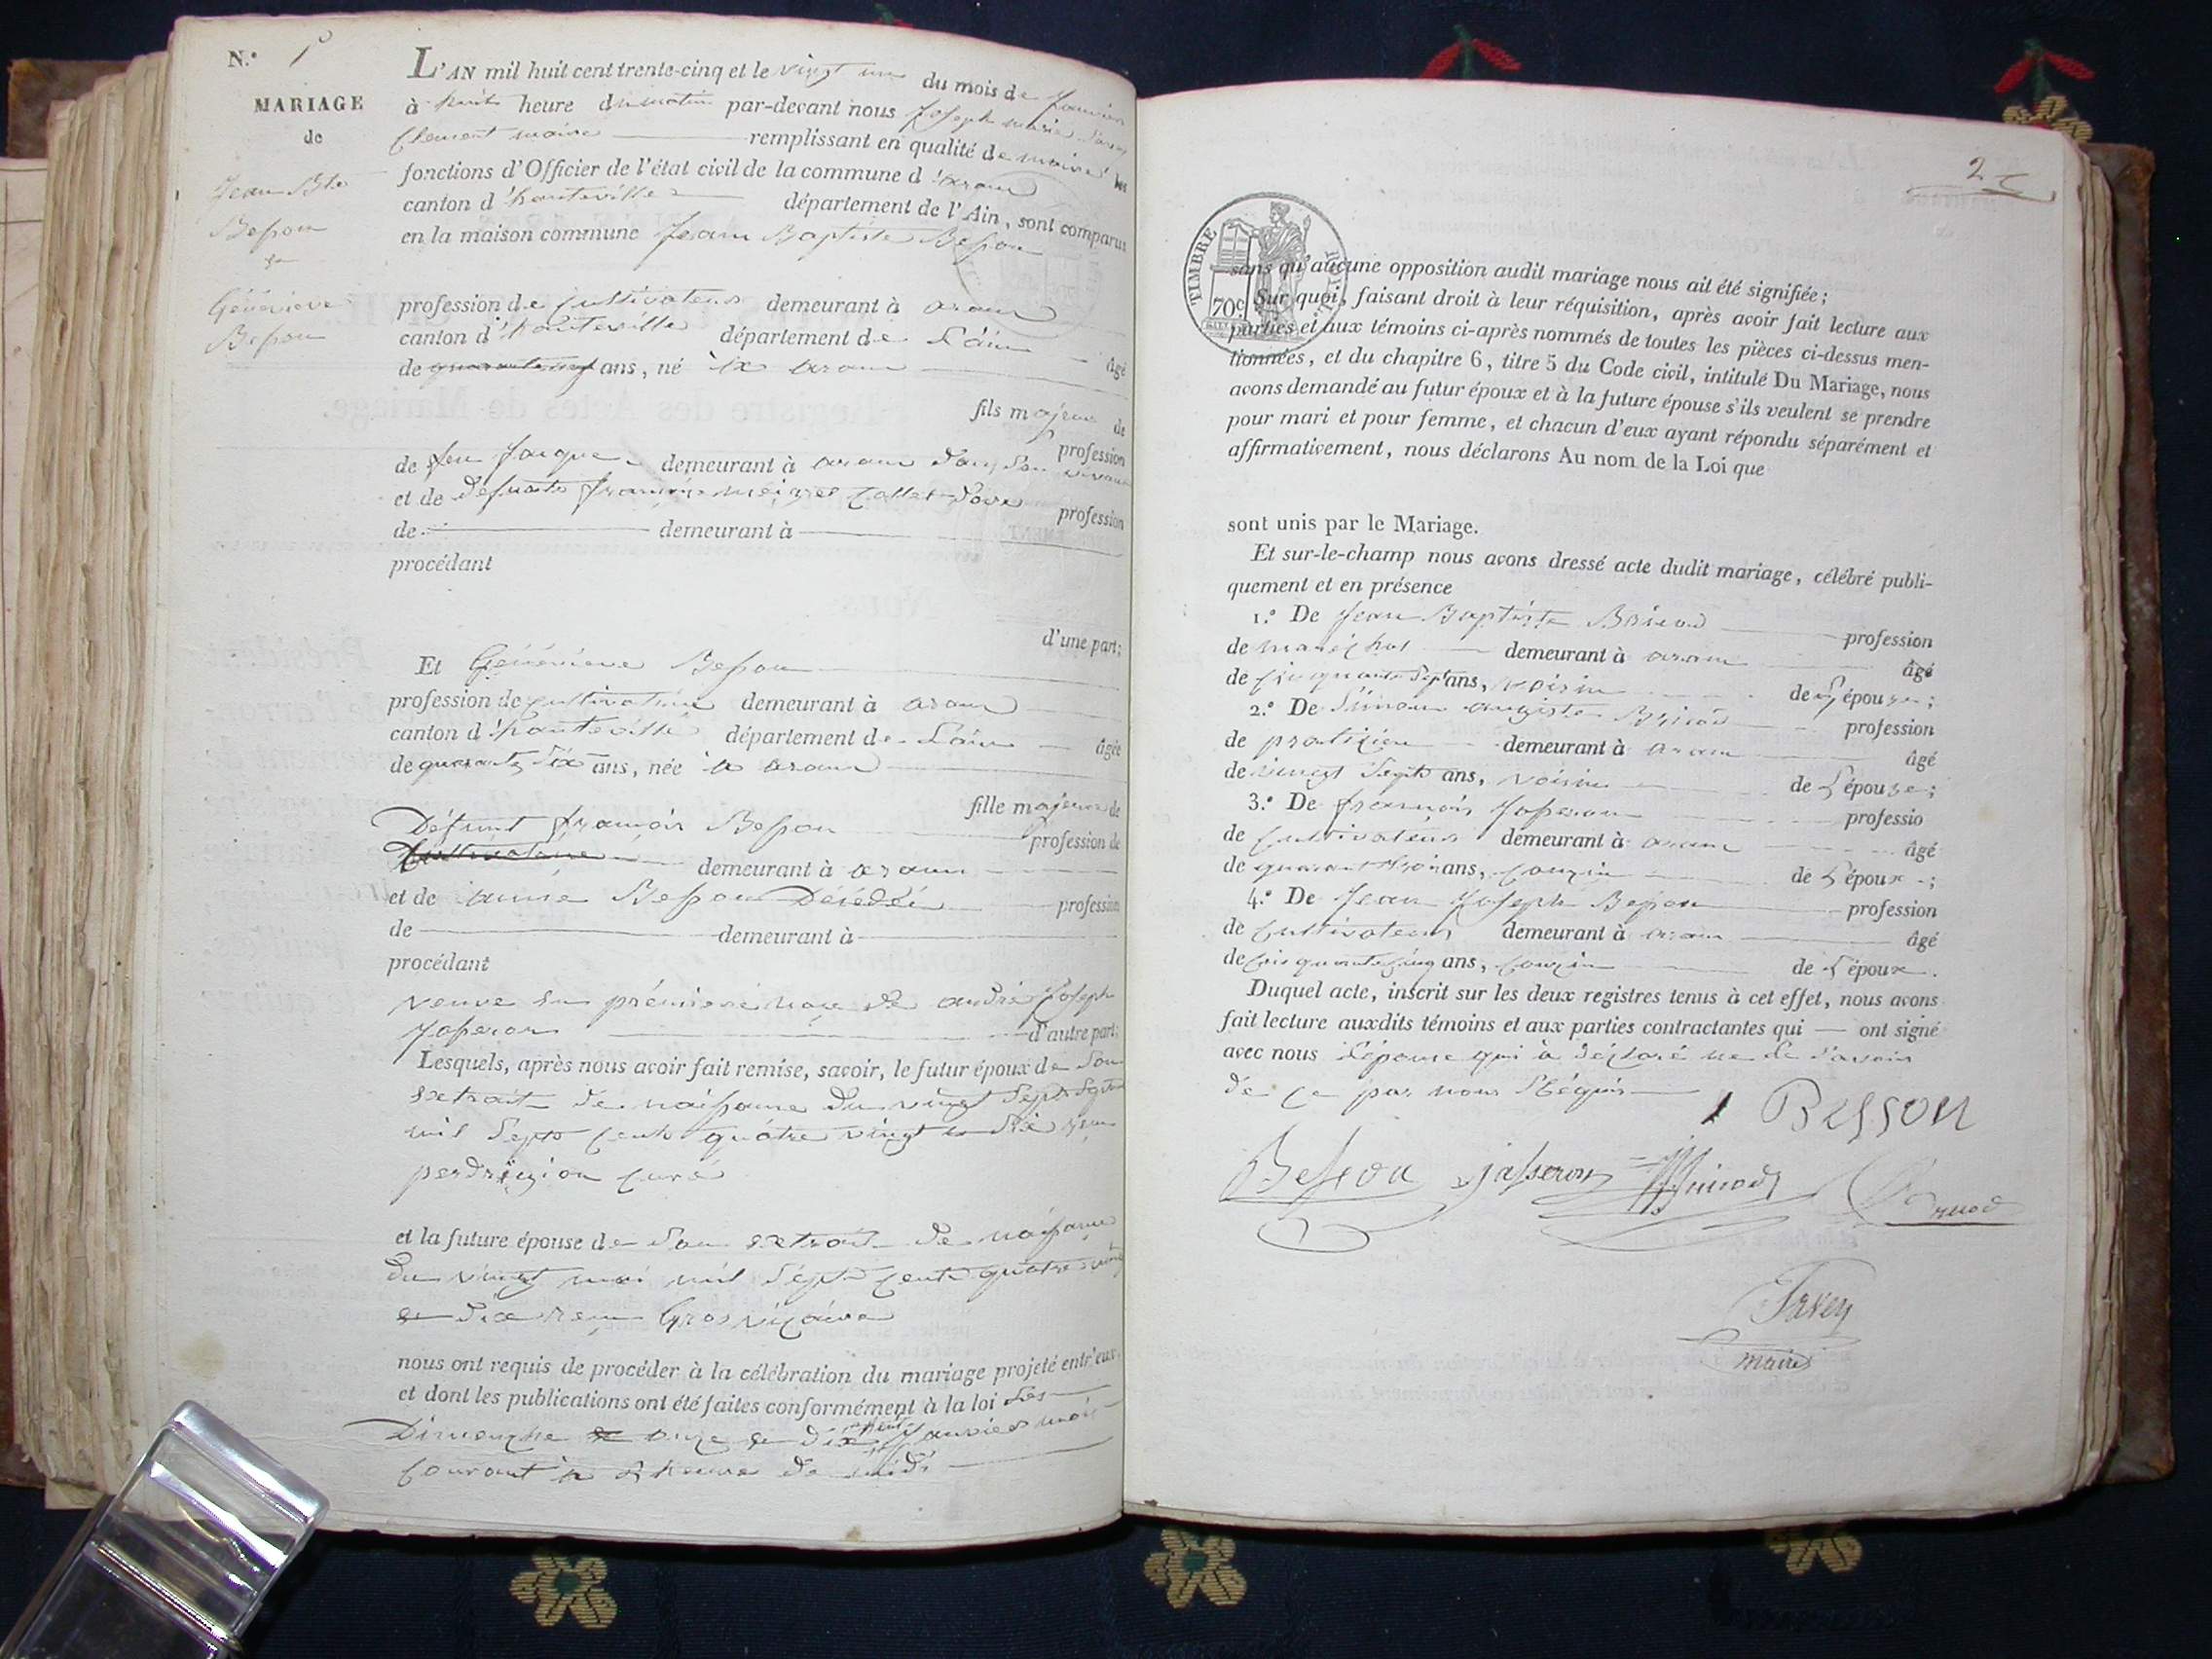 N.º 1
MARIAGE
de
Jean Bte
Besson
et
Généviève
Besson
L'AN mil huit cent trente-cinq et le vingt un du mois de Janvier
à huit heure du matin par-devant nous Joseph marie
Clement maire remplissant en qualité de maire les
fonctions d'Officier de l'état civil de la commune d'aranc
canton d'hauteville département de l'Ain, sont comparus
en la maison commune Jean Baptiste Besson
profession de Cultivateur demeurant à aranc
canton d'hauteville département de L'ain âgé
de ans, né à aranc
fils majeur de
de feu Jacque demeurant à aranc dans son vivant profession
et de defunte françoise
de demeurant à profession
procédant
d'une part;
Et Généviève Besson
profession de cultivatrice demeurant à aranc
canton d'hauteville département de L'ain âgée
de quarante six ans, née à aranc
fille majeure de
Défunt françois Besson profession de
demeurant à aranc
et de anne Besson Décédée profession
de demeurant à
procédant
veuve en première noce de andré Joseph
Josseron d'autre part;
Lesquels, après nous avoir fait remise, savoir, le futur époux de son
extrait de naissance du vingt sept
mil sept cent quatre vingt dix
curé
et la future épouse de son extrait de naissance
du vingt mai mil sept cent quatre vingt
Gros vicaire
nous ont requis de procéder à la célébration du mariage projeté entr'eux
et dont les publications ont été faites conformément à la loi Les
Dimanche onze et dix huit Janvier mois
courant à heure de midi
2
TIMBRE ROYAL
70c
sans qu'aucune opposition audit mariage nous ait été signifiée;
Sur quoi, faisant droit à leur réquisition, après avoir fait lecture aux
parties et aux témoins ci-après nommés de toutes les pièces ci-dessus men-
tionnées, et du chapitre 6, titre 5 du Code civil, intitulé Du Mariage, nous
avons demandé au futur époux et à la future épouse s'ils veulent se prendre
pour mari et pour femme, et chacun d'eux ayant répondu séparément et
affirmativement, nous déclarons Au nom de la Loi que
sont unis par le Mariage.
Et sur-le-champ nous avons dressé acte dudit mariage, célébré publi-
quement et en présence
1.º De Jean Baptiste profession
de maréchal demeurant à aranc âgé
de cinquante sept ans, voisin de L'épouse;
2.º De Simon auguste profession
de praticien demeurant à aranc âgé
de vingt sept ans, voisin de L'épouse;
3.º De françois Josseron professio
de Cultivateur demeurant à aranc âgé
de quarante trois ans, couzin de L'époux;
4.º De Jean Joseph Besson profession
de Cultivateur demeurant à aranc âgé
de cinquante cinq ans, couzin de L'époux.
Duquel acte, inscrit sur les deux registres tenus à cet effet, nous avons
fait lecture auxdits témoins et aux parties contractantes qui — ont signé
avec nous L'épouse qui a déclaré ne le savoir
de ce par nous Réquis
Besson
Besson jasseron
maire